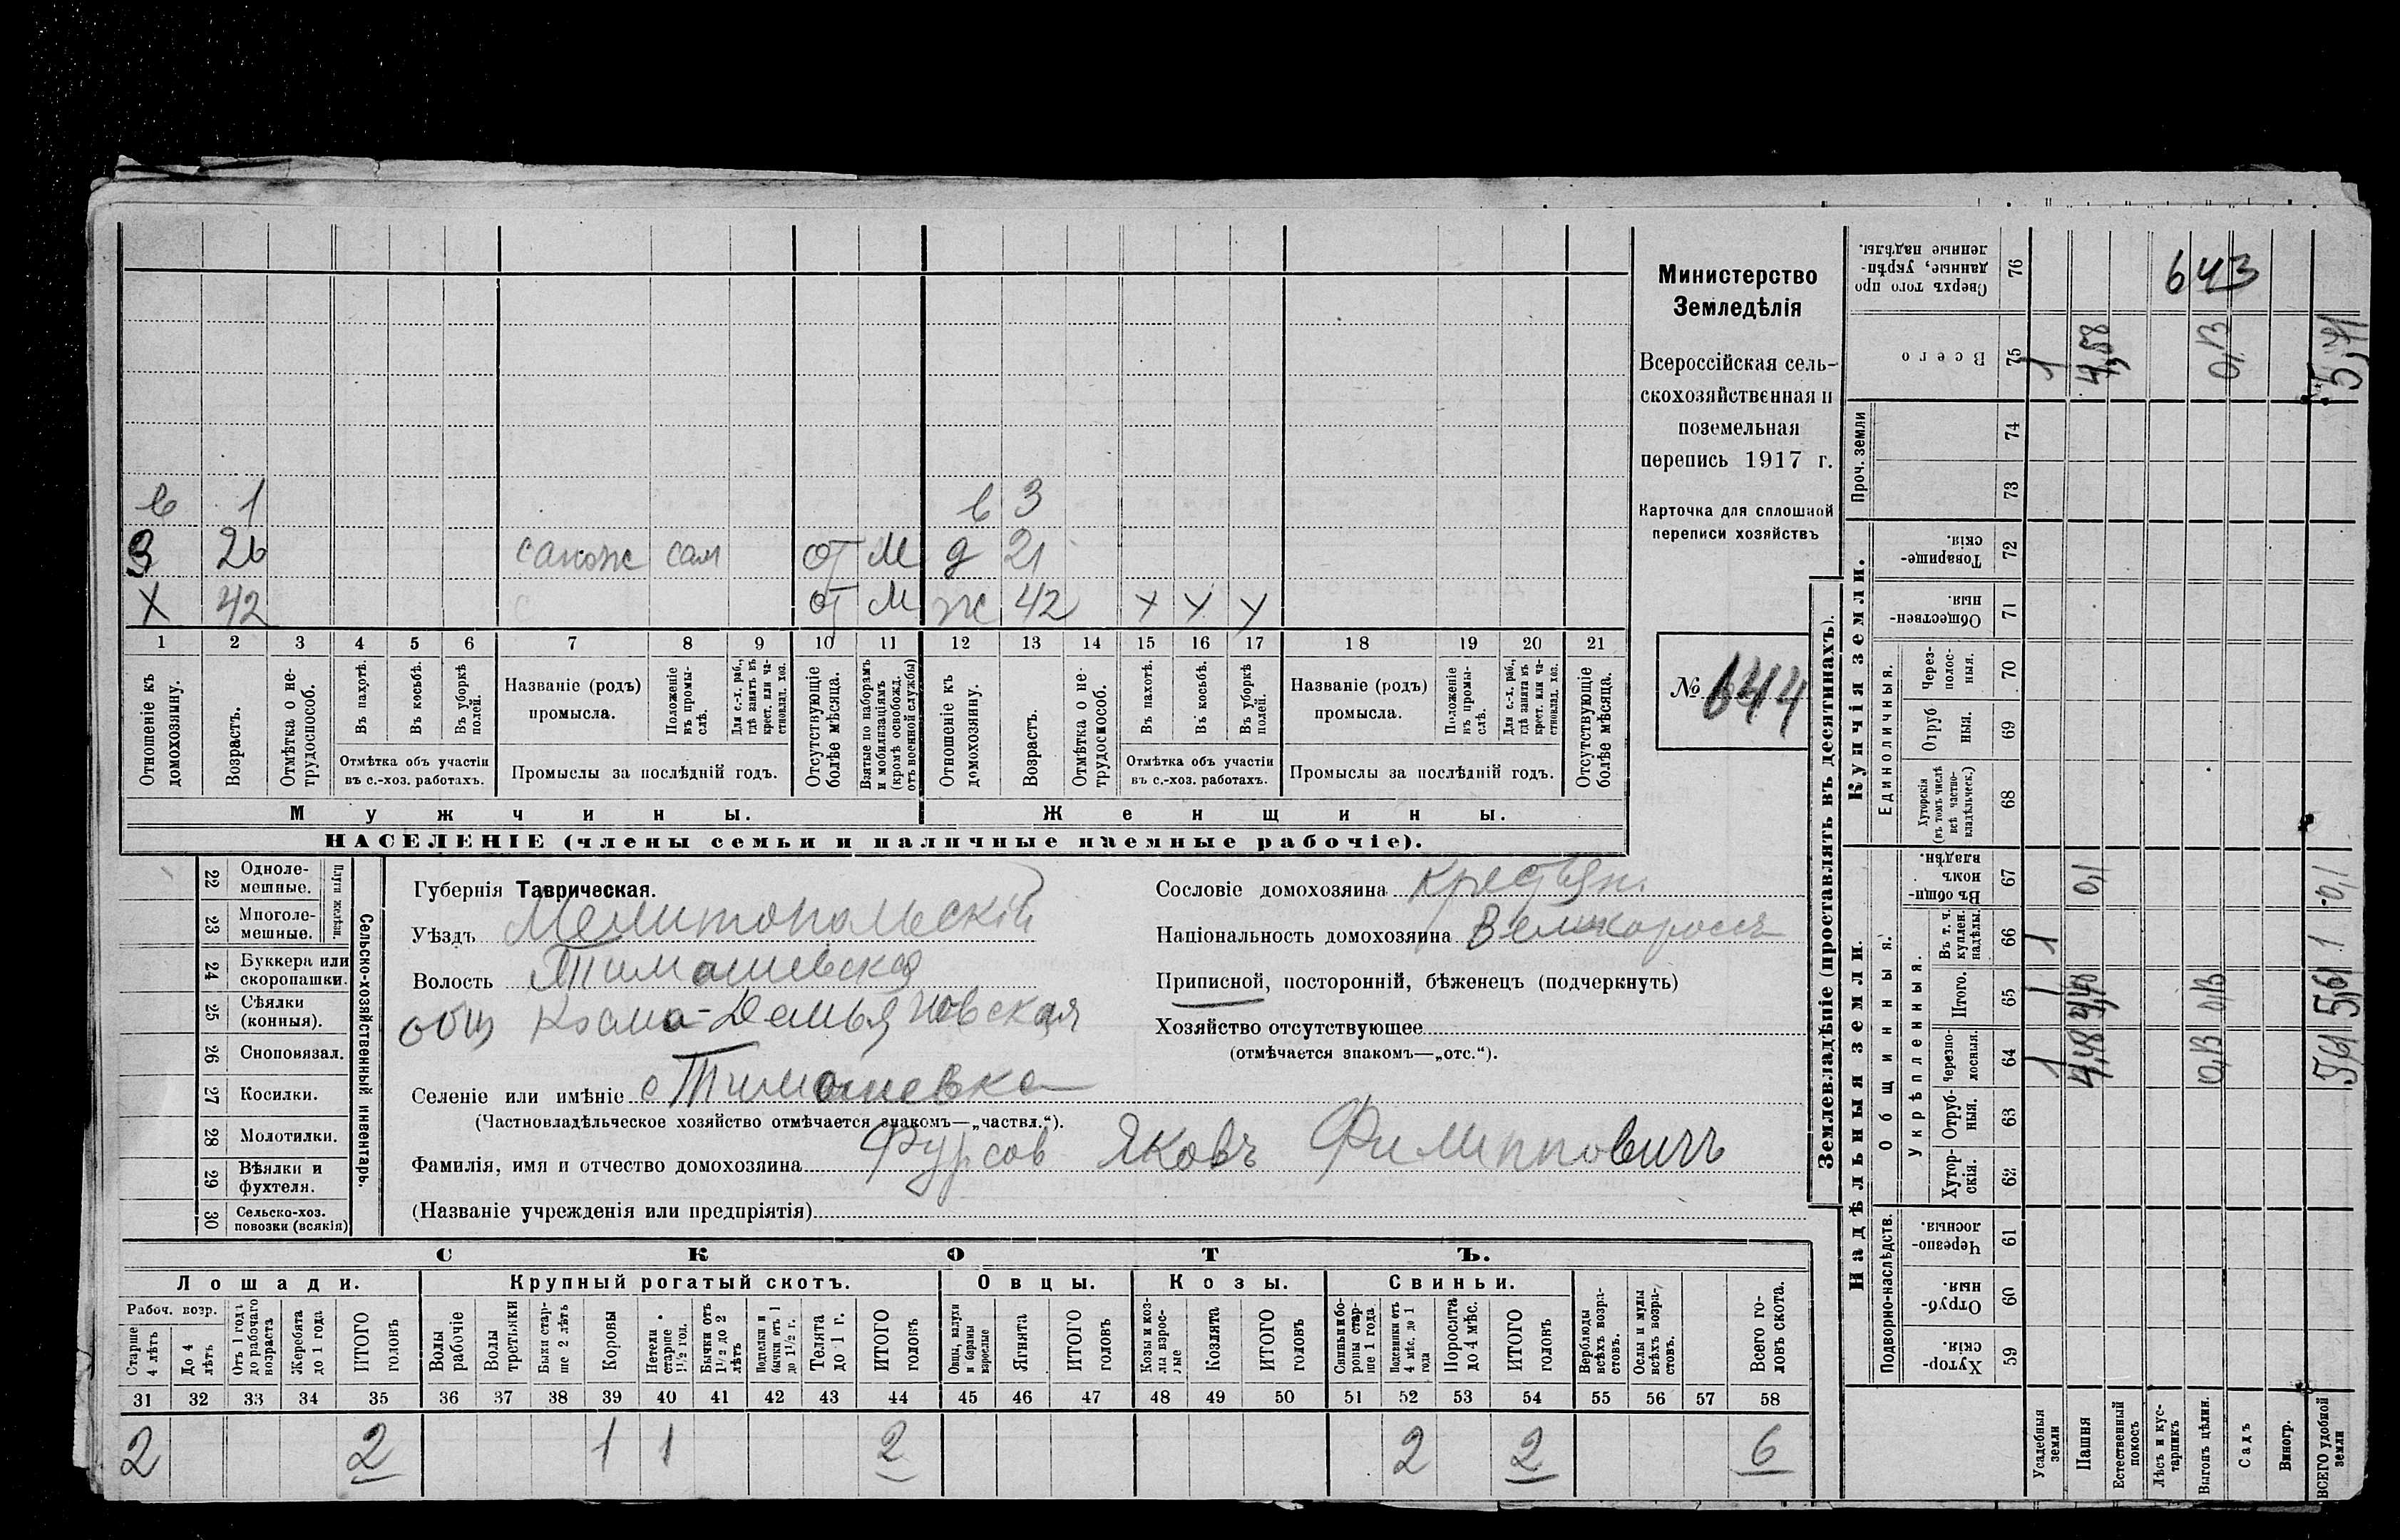 в 1 в 3
З 26 сапож сам от м д 21
Х 42 от м ж 42 х х х
1 2 3 4 5 6 7 8 9 10 11 12 13 14 15 16 17 18 19 20 21
Отношеніе къ домохозяину.
Возрастъ.
Отмѣтка о не-
трудоспособ.
Въ пахотѣ.
Въ косьбѣ.
Въ уборкѣ полей.
Отмѣтка объ участіи
въ с.-хоз. работахъ.
Названіе (родъ)
промысла.
Положеніе въ промы-
слѣ.
Для с.-х. раб., гдѣ занятъ въ крест. или ча-
стновлад. хоз.
Промыслы за послѣдній годъ.
Отсутствующіе болѣе мѣсяца.
Взятые по наборамъ и мобилизаціямъ (кромѣ освобожд. отъ военной службы)
Отношеніе къ домохозяину.
Возрастъ.
Отмѣтка о не-
трудоспособ.
Въ пахотѣ.
Въ косьбѣ.
Въ уборкѣ полей.
Отмѣтка объ участіи
въ с.-хоз. работахъ.
Названіе (родъ)
промысла.
Положеніе въ промы-
слѣ.
Для с.-х. раб., гдѣ занята въ крест. или ча-
стновлад. хоз.
Промыслы за послѣдній годъ.
Отсутствующіе болѣе мѣсяца.
Мужчины. Женщины.
НАСЕЛЕНІЕ (члены семьи и наличные наемные рабочіе).
Министерство
Земледѣлія
Всероссійская сель-
скохозяйственная и
поземельная
перепись 1917 г.
Карточка для сплошной
переписи хозяйствъ
№ 644
22 Одноле-
мешные.
23 Многоле-
мешные.
Плуги желѣзн.
24 Буккера или
скоропашки.
25 Сѣялки
(конныя).
26 Сноповязал.
27 Косилки.
28 Молотилки.
29 Вѣялки и
фухтеля.
30 Сельско-хоз.
повозки (всякія)
Сельско-хозяйственный инвентарь.
Губернія Таврическая.
Уѣздъ Мелитопольскій
Волость Тимошевская
общ Косма-Демьяновская
Селеніе или имѣніе с Тимошевка
(Частновладѣльческое хозяйство отмѣчается знакомъ—„частвл.“).
Фамилія, имя и отчество домохозяина Фурсов Яковъ Филипповичъ
(Названіе учрежденія или предпріятія)
Сословіе домохозяина крестьян.
Національность домохозяина Великороссъ
Приписной, посторонній, бѣженецъ (подчеркнуть)
Хозяйство отсутствующее
(отмѣчается знакомъ—„отс.“).
СКОТЪ.
Лошади. Крупный рогатый скотъ. Овцы. Козы. Свиньи.
Рабоч. возр.
Старше 4 лѣтъ
До 4 лѣтъ
Отъ 1 года до рабочаго возраста
Жеребята до 1 года
ИТОГО головъ
Волы рабочіе
Волы третьяки
Быки стар-
ше 2 лѣтъ
Коровы
Нетели старше 1½ год.
Бычки отъ 1½ до 2 лѣтъ
Подтелки и бычки отъ 1 до 1½ г.
Телята до 1 г.
ИТОГО головъ
Овцы, валухи и бараны взрослые
Ягнята
ИТОГО головъ
Козы и коз-
лы взрос-
лые
Козлята
ИТОГО головъ
Свиньи и бо-
ровы стар-
ше 1 года
Подсвинки отъ 4 мѣс. до 1 года
Поросята до 4 мѣс.
ИТОГО головъ
Верблюды всѣхъ возра-
стовъ.
Ослы и мулы всѣхъ возра-
стовъ.
Всего го-
ловъ скота.
31 32 33 34 35 36 37 38 39 40 41 42 43 44 45 46 47 48 49 50 51 52 53 54 55 56 57 58
2 2 1 1 2 2 2 6
Землевладѣніе (проставлять въ десятинахъ).
Купчія земли.
Надѣльныя земли.
Сверхъ того про
данные, укрѣп-
ленные надѣлы. 76
643
Всего 75 1 4,58 0,13 5,71
Проч. земли 74 73
Товарище-
скія. 72
Обществен-
ныя. 71
Единоличныя.
Через-
полос-
ныя. 70
Отруб
ныя. 69
Хуторскія (въ томъ числѣ всѣ частно-
владѣльческ.) 68
Общинныя.
Въ общин-
номъ владѣн. 67 0,1 0,1
Укрѣпленныя.
Въ т. ч. куплен. надѣлы. 66 1 1
Итого. 65 1 4,48 0,13 5,61
Черезпо-
лосныя. 64 1 4,48 0,13 5,61
Отруб-
ныя. 63
Хутор-
скія. 62
Подворно-наслѣдств.
Черезпо-
лосныя. 61
Отруб-
ныя. 60
Хутор-
скія. 59
Усадебныя земли
Пашня
Естественный покосъ
Лѣсъ и кус-
тарникъ
Выгонъ цѣлин.
Садъ
Виногр.
ВСЕГО удобной земли